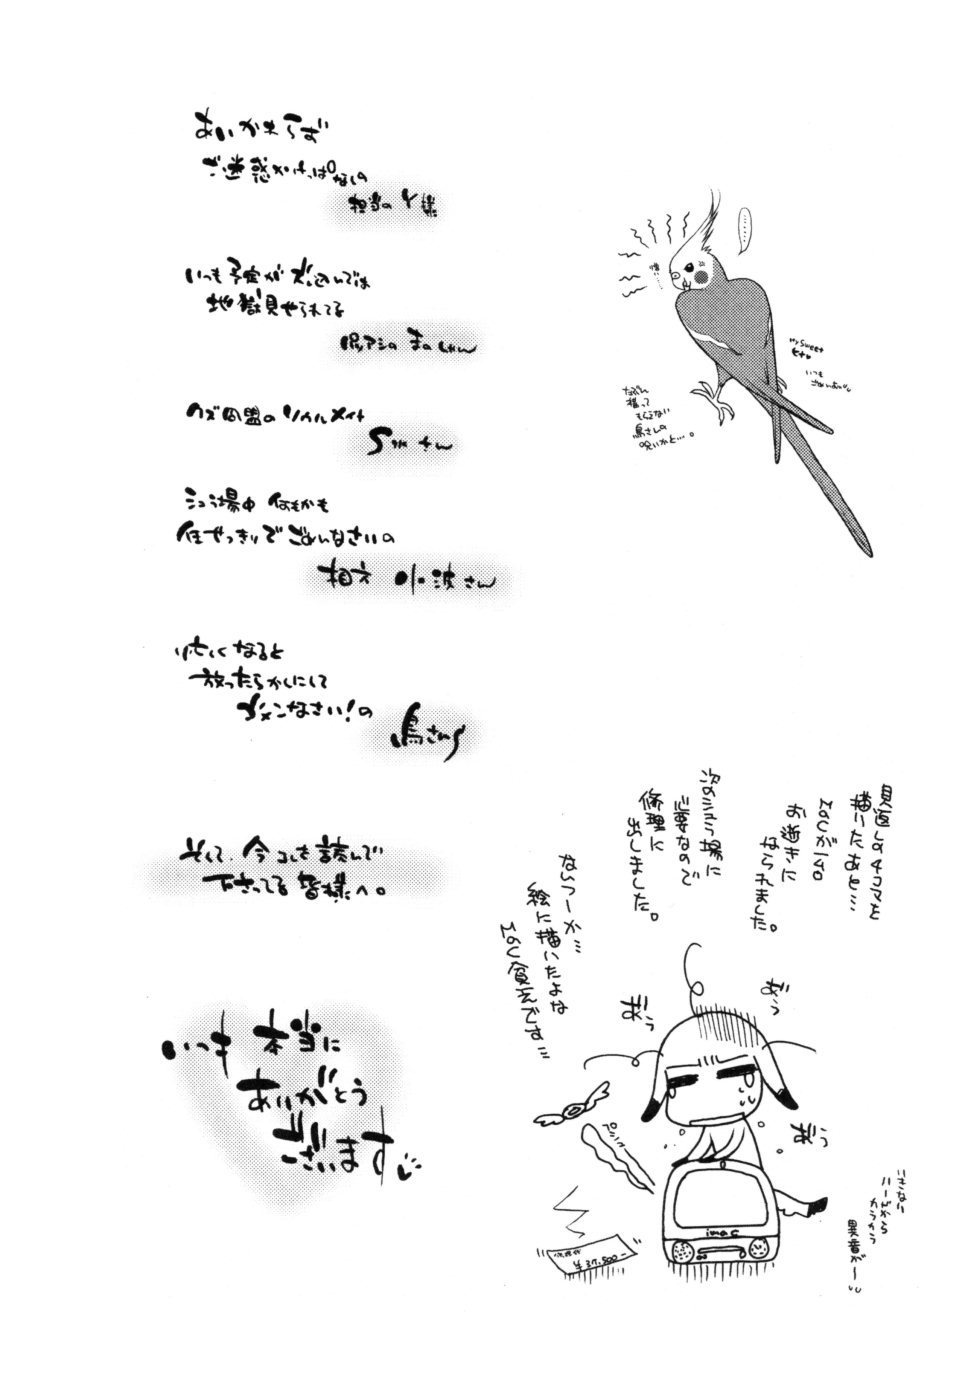 あいかわらず
ご迷惑かけっぱなしの
担当のY様
いつも予定が
地獄見せられてる
クズ同盟のソウルメイト
さん
シュラ場中 何もかも
任せっきりでごめんなさいの
相方 小波さん
忙しくなると
放ったらかしにして
ゴメンなさい!の
鳥さん
そして、今コレを読んで
下さってる皆様へ。
いつも本当に
ありがとう
ございます
憎い…
My Sweet
いつも
ごめんね
なぜか
構って
もらえない
鳥さんの
呪いかと…。
見返しの4コマを
描いたあと…
MACが
お逝きに
なられました。
次のシュラ場に
必要なので
修理に
出しました。
ならつーか…
絵に描いたよな
MAC貧乏です…
imac
¥37,500-
ハードから
カラカラ
異音がー